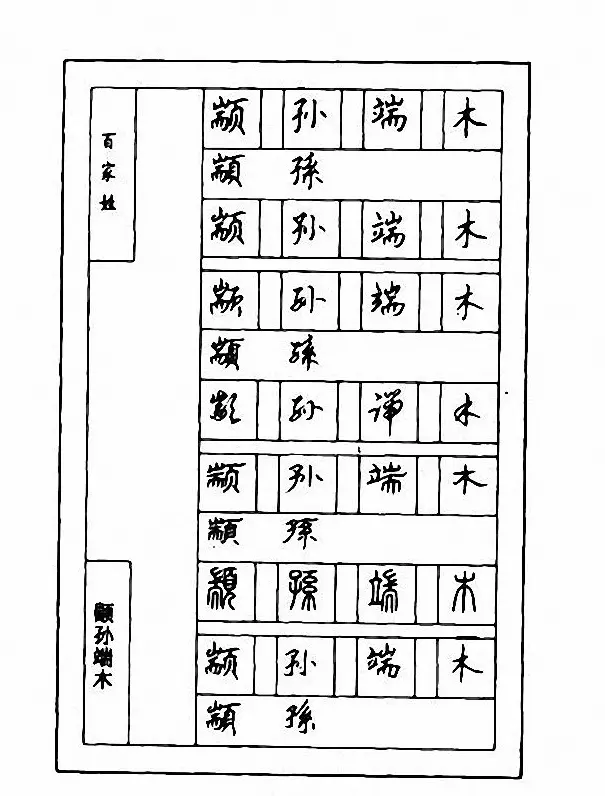 百家姓
颛 孙 端 木
顓 孫
颛 孙 端 木
颛 孙 端 木
顓 孫
颛 孙 端 木
颛 孙 端 木
顓 孫
顓 孫 端 木
颛 孙 端 木
顓 孫
顓孙端木